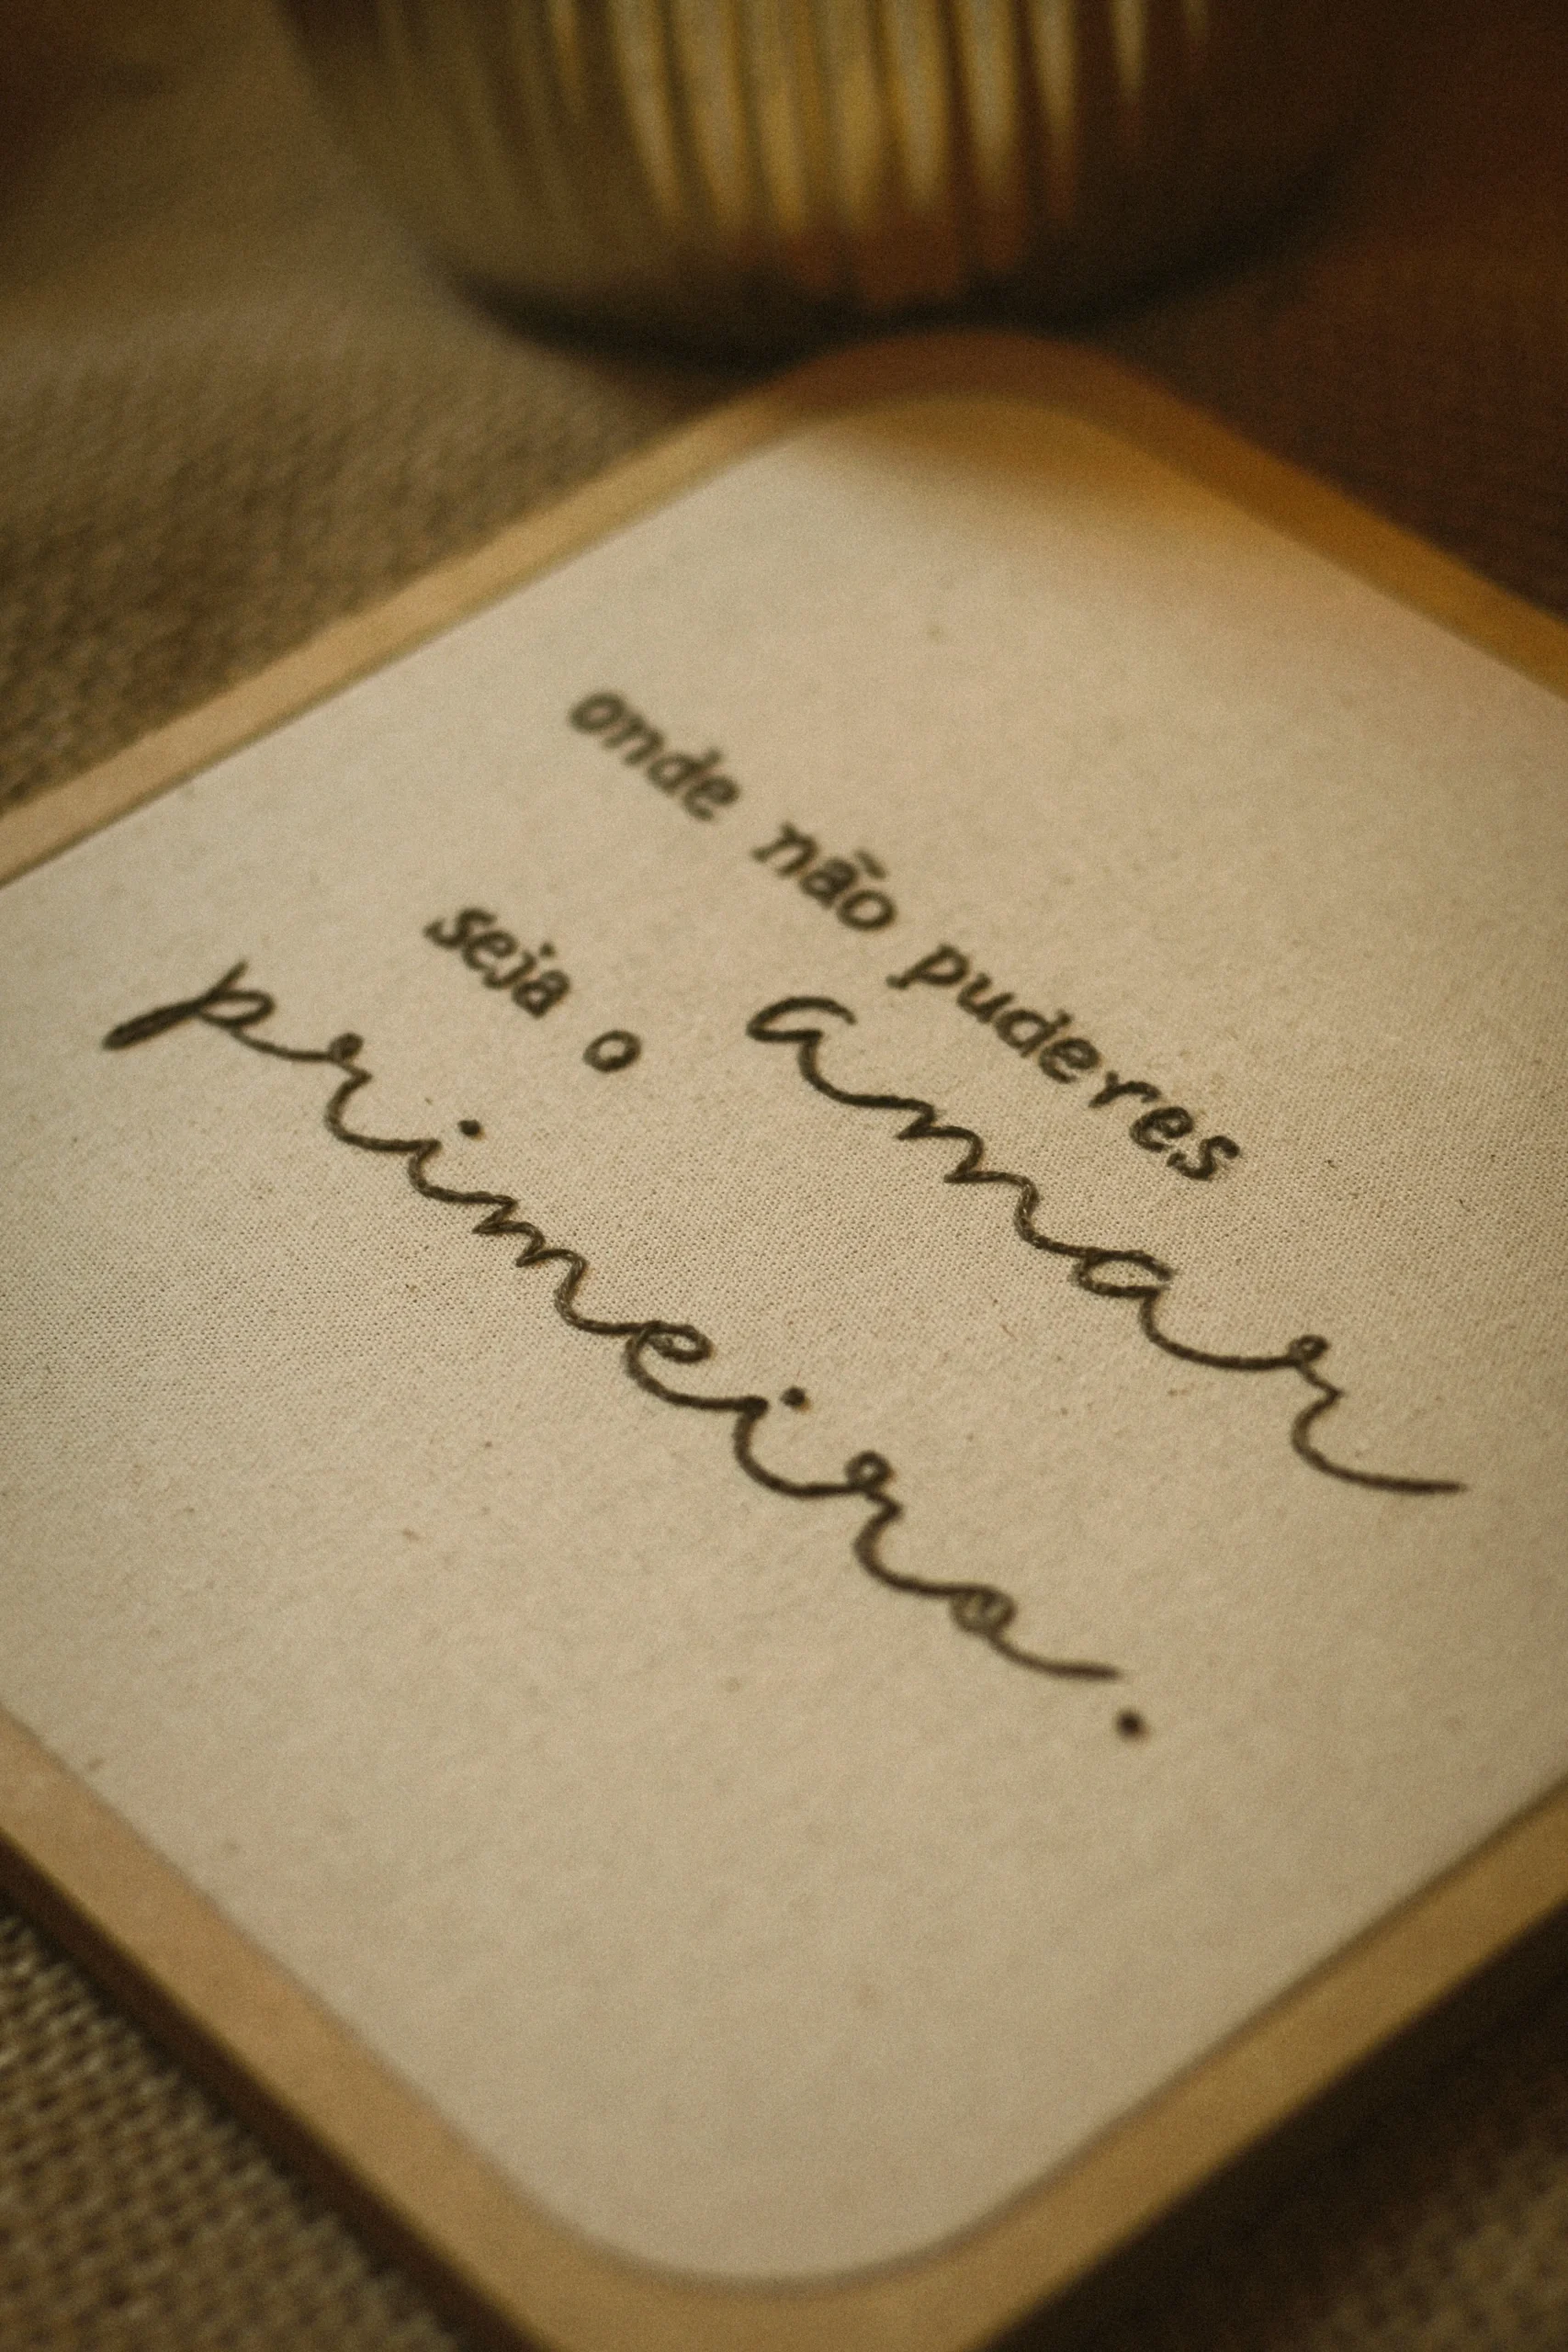 onde não puderes
amar
seja o
primeiro.